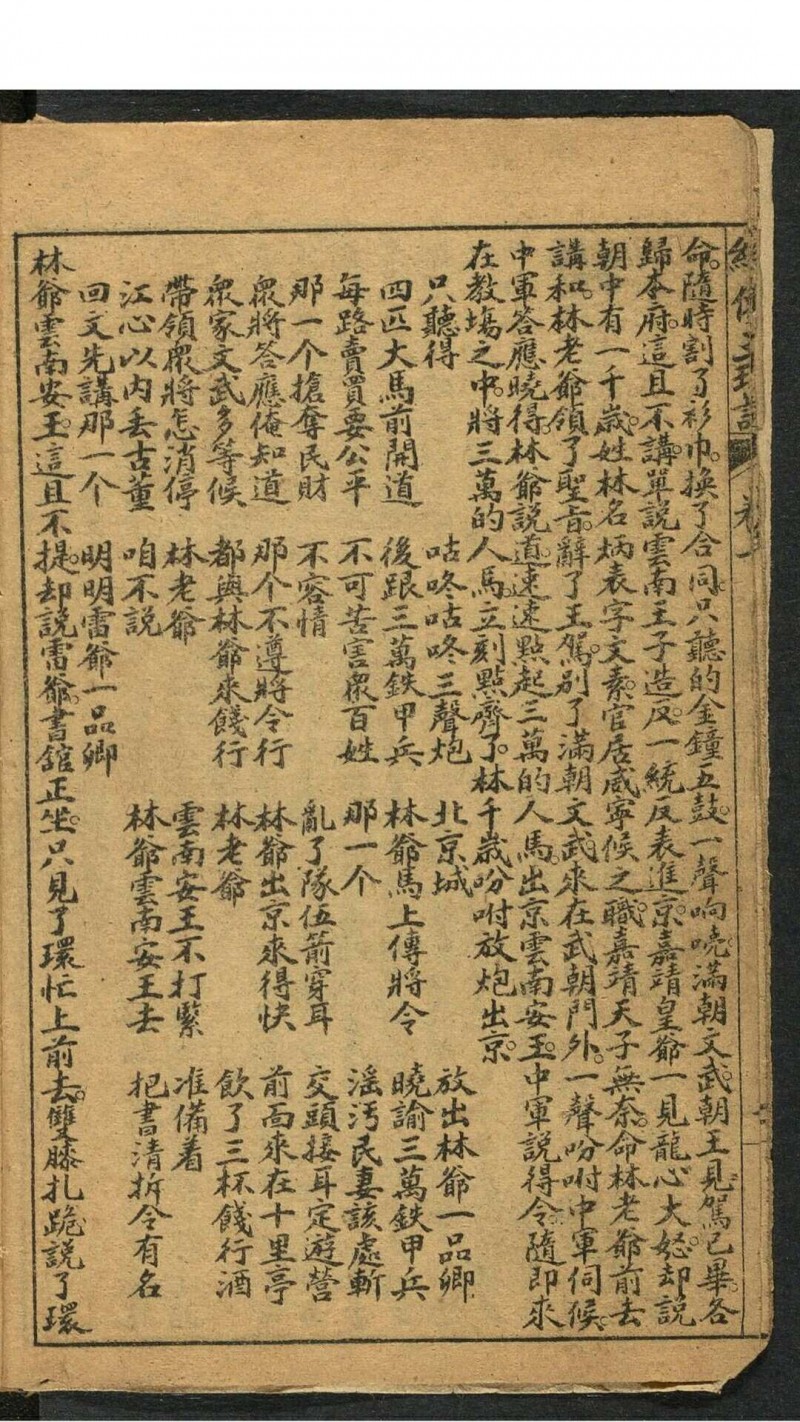 卷一
命。隨時割了衫巾。換了合同。只聽的金鐘五鼓。一聲响曉。滿朝文武。朝王見駕已畢。各
歸本府。這且不講。單說雲南王子造反。一統反表進京。嘉靖皇爺一見龍心大怒。却說
朝中有一千歲。姓林名炳表字文素。官居咸寧候之職。嘉靖天子無奈。命林老爺前去
講和。林老爺領了聖旨。辭了王駕。別了滿朝文武。來在武朝門外。一聲吩咐中軍伺候。
中軍答應曉得。林爺說道。速速點起三萬的人馬。出京雲南安王。中軍說得令。隨即來
在教塲之中。將三萬的人馬。立刻點齊了。林千歲吩咐放炮出京。
只聽得 咕咚咕咚三聲炮 北京城 放出林爺一品卿
四匹大馬前開道 後跟三萬鉄甲兵 林爺馬上傳將令 曉諭三萬鉄甲兵
每路賣買要公平 不可苦害衆百姓 那一个 滛汚民妻該處斬
那一个搶奪民財 不容情 亂了隊伍箭穿耳 交頭接耳定遊營
衆將答應俺知道 那个不遵將令行 林爺出京來得快 前面來在十里亭
衆家文武多等候 都與林爺來餞行 林老爺 飲了三杯餞行酒
帶領衆將怎消停 林老爺 雲南安王不打緊 准備着
江心以内丢古董 咱不說 林爺雲南安王去 把書清拆令有名
回文先講那一个 明明雷爺一品卿
林爺雲南安王。這且不提。却說雷爺。書舘正坐。只見了環忙上前去。雙膝扎跪。說了環